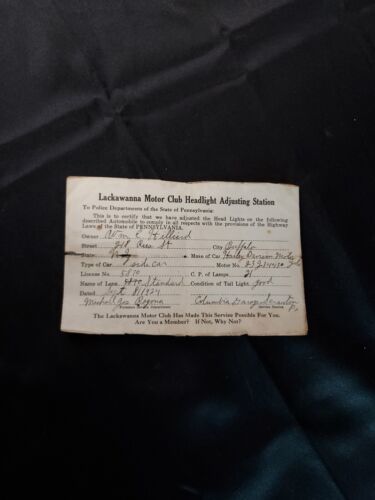 Lackawanna Motor Club Headlight Adjusting Station
To Police Departments of the State of Pennsylvania:
This is to certify that we have adjusted the Head Lights on the following
described Automobile to comply in all respects with the provisions of the Highway
Laws of the State of PENNSYLVANIA.
Owner Wm C Hilliard
Street St City Buffalo
State N.Y. Make of Car Harley Davison
Type of Car side car Motor No.
License No. 5810 C. P. of Lamps 21
Name of Lens Standard Condition of Tail Light good
Dated Sept 8/1924
Columbia Garage Scranton Pa
The Lackawanna Motor Club Has Made This Service Possible For You.
Are You a Member? If Not, Why Not?